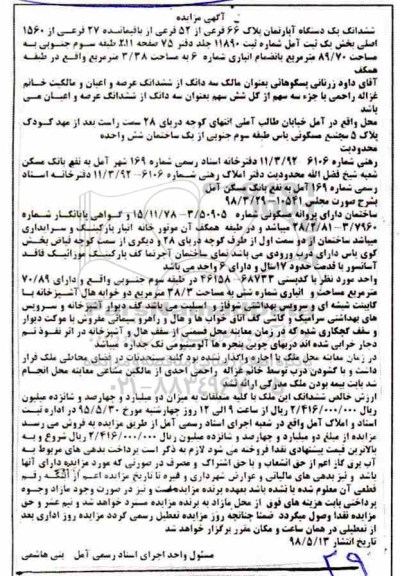 آگهی مزایده
ششدانگ یک دستگاه آپارتمان پلاک ۶۶ فرعی از ۵۲ فرعی از باقیمانده ۲۷ فرعی از ۱۵۶۰
اصلی بخش یک ثبت آمل شماره ثبت ۱۱۸۹۰ جلد دفتر ۷۵ صفحه ۲۱۱ طبقه سوم جنوبی به
مساحت ۸۹/۷۰ مترمربع بانضمام انباری شماره ۶ به مساحت ۳/۳۸ مترمربع واقع در طبقه
همکف
آقای داود زربانی پسکوهانی بعنوان مالک سه دانگ از ششدانگ عرصه و اعیان و مالکیت خانم
غزاله راحمی با جزء سه سهم از کل شش سهم بعنوان سه دانگ از ششدانگ عرصه و اعیان می
باشد
محل واقع در آمل خیابان طالب آملی انتهای کوچه دریای ۲۸ سمت راست بعد از مهد کودک
پلاک ۵ مجتمع مسکونی یاس طبقه سوم جنوبی از یک ساختمان شش واحده
محدودیت
رهنی شماره ۶۱۰۶–۱۱/۳/۹۲ دفترخانه اسناد رسمی شماره ۱۶۹ شهر آمل به نفع بانک مسکن
شعبه شیخ فضل الله محدودیت دفتر املاک رهنی شماره ۶۱۰۶–۱۱/۳/۹۲ دفترخانه اسناد
رسمی شماره ۱۶۹ آمل به نفع بانک مسکن آمل
بشرح صورت مجلس ۱۰۵۴۱–۹۸/۳/۲۹
ساختمان دارای پروانه مسکونی شماره ۳/۵۰۹۰۵–۱۵/۱۱/۷۸ و گواهی پایانکار شماره
۳/۷۹۶۰–۲۸/۲/۸۱ میباشد و در طبقه همکف آن موتور خانه انبار پارکینگ و سرایداری
میباشد ساختمان از دو سمت اول از طرف کوچه دریای ۲۸ و دیگری از سمت کوچه فیاض بخش
کوی یاس دارای درب ورودی می باشد نمای ساختمان آجرنما کف پارکینگ موزائیک فاقد
آسانسور با قدمت حدود ۱۷سال و دارای ۶ واحد می باشد
واحد مورد نظر با کدپستی ۶۸۷۳۳–۴۶۱۵۸ در طبقه سوم جنوبی واقع و دارای ۷۰/۸۹
مترمربع مساحت و انباری شماره شش به مساحت ۳۸/۳ مترمربع دو خوابه هال آشپزخانه با
کابینت شیشه ای و سرویس بهداشتی شوفاژ و اسپلیت می باشد کف دیوار آشپزخانه و سرویس
های بهداشتی سرامیک و کاشی کف اتاق خواب ها و هال و راهرو سیمانی مفروش با موکت دیوار
و سقف گچکاری شده که در زمان معاینه محل قسمتی از سقف هال و آشپزخانه در اثر نفوذ نم
دچار خرابی شده اند دربهای چوبی پنجره ها آلومینیومی تک جداره میباشد
در زمان معاینه محل ملک با اجاره واگذار نشده بود کلیه مستحدثات در فضای محاطی ملک قرار
داشت و با گشودن درب توسط خانم غزاله راحمی احدی از مالکین مشاعی معاینه محل انجام
شد بابت بیمه بودن ملک مدرکی ارائه نشد
ارزش خالص ششدانگ این ملک با کلیه متعلقات به میزان دو میلیارد و چهارصد و شانزده میلیون
ریال ۲/۴۱۶/۰۰۰/۰۰۰ ریال از ساعت ۹ الی ۱۲ روز چهارشنبه مورخ ۹۵/۵/۳۰ در اداره ثبت
اسناد و املاک آمل واقع در شعبه اجرای اسناد رسمی آمل از طریق مزایده به فروش می رسد
مزایده از مبلغ دو میلیارد و چهارصد و شانزده میلیون ریال ۲/۴۱۶/۰۰۰/۰۰۰ ریال شروع و به
بالاترین قیمت پیشنهادی نقدا فروخته می شود لازم به ذکر است پرداخت بدهی های مربوط به
آب برق گاز اعم از حق انشعاب و یا حق اشتراک و مصرف در صورتی که مورد مزایده دارای آنها
باشد و نیز بدهی های مالیاتی و عوارض شهرداری و غیره تا تاریخ مزایده اعم از اینکه رقم
قطعی آن معلوم شده یا نشده باشد بعهده برنده مزایده است و نیز در صورت وجود مازاد وجوه
پرداختی بابت هزینه های فوق از محل مازاد به برنده مزایده مسترد خواهد شد و نیم عشر و حق
مزایده نقدا وصول میگردد ضمنا چنانچه روز مزایده تعطیل رسمی گردد مزایده روز اداری بعد
از تعطیلی در همان ساعت و مکان مقرر برگزار خواهد شد
تاریخ انتشار ۹۸/۵/۱۳
مسئول واحد اجرای اسناد رسمی آمل بنی هاشمی
۲۹